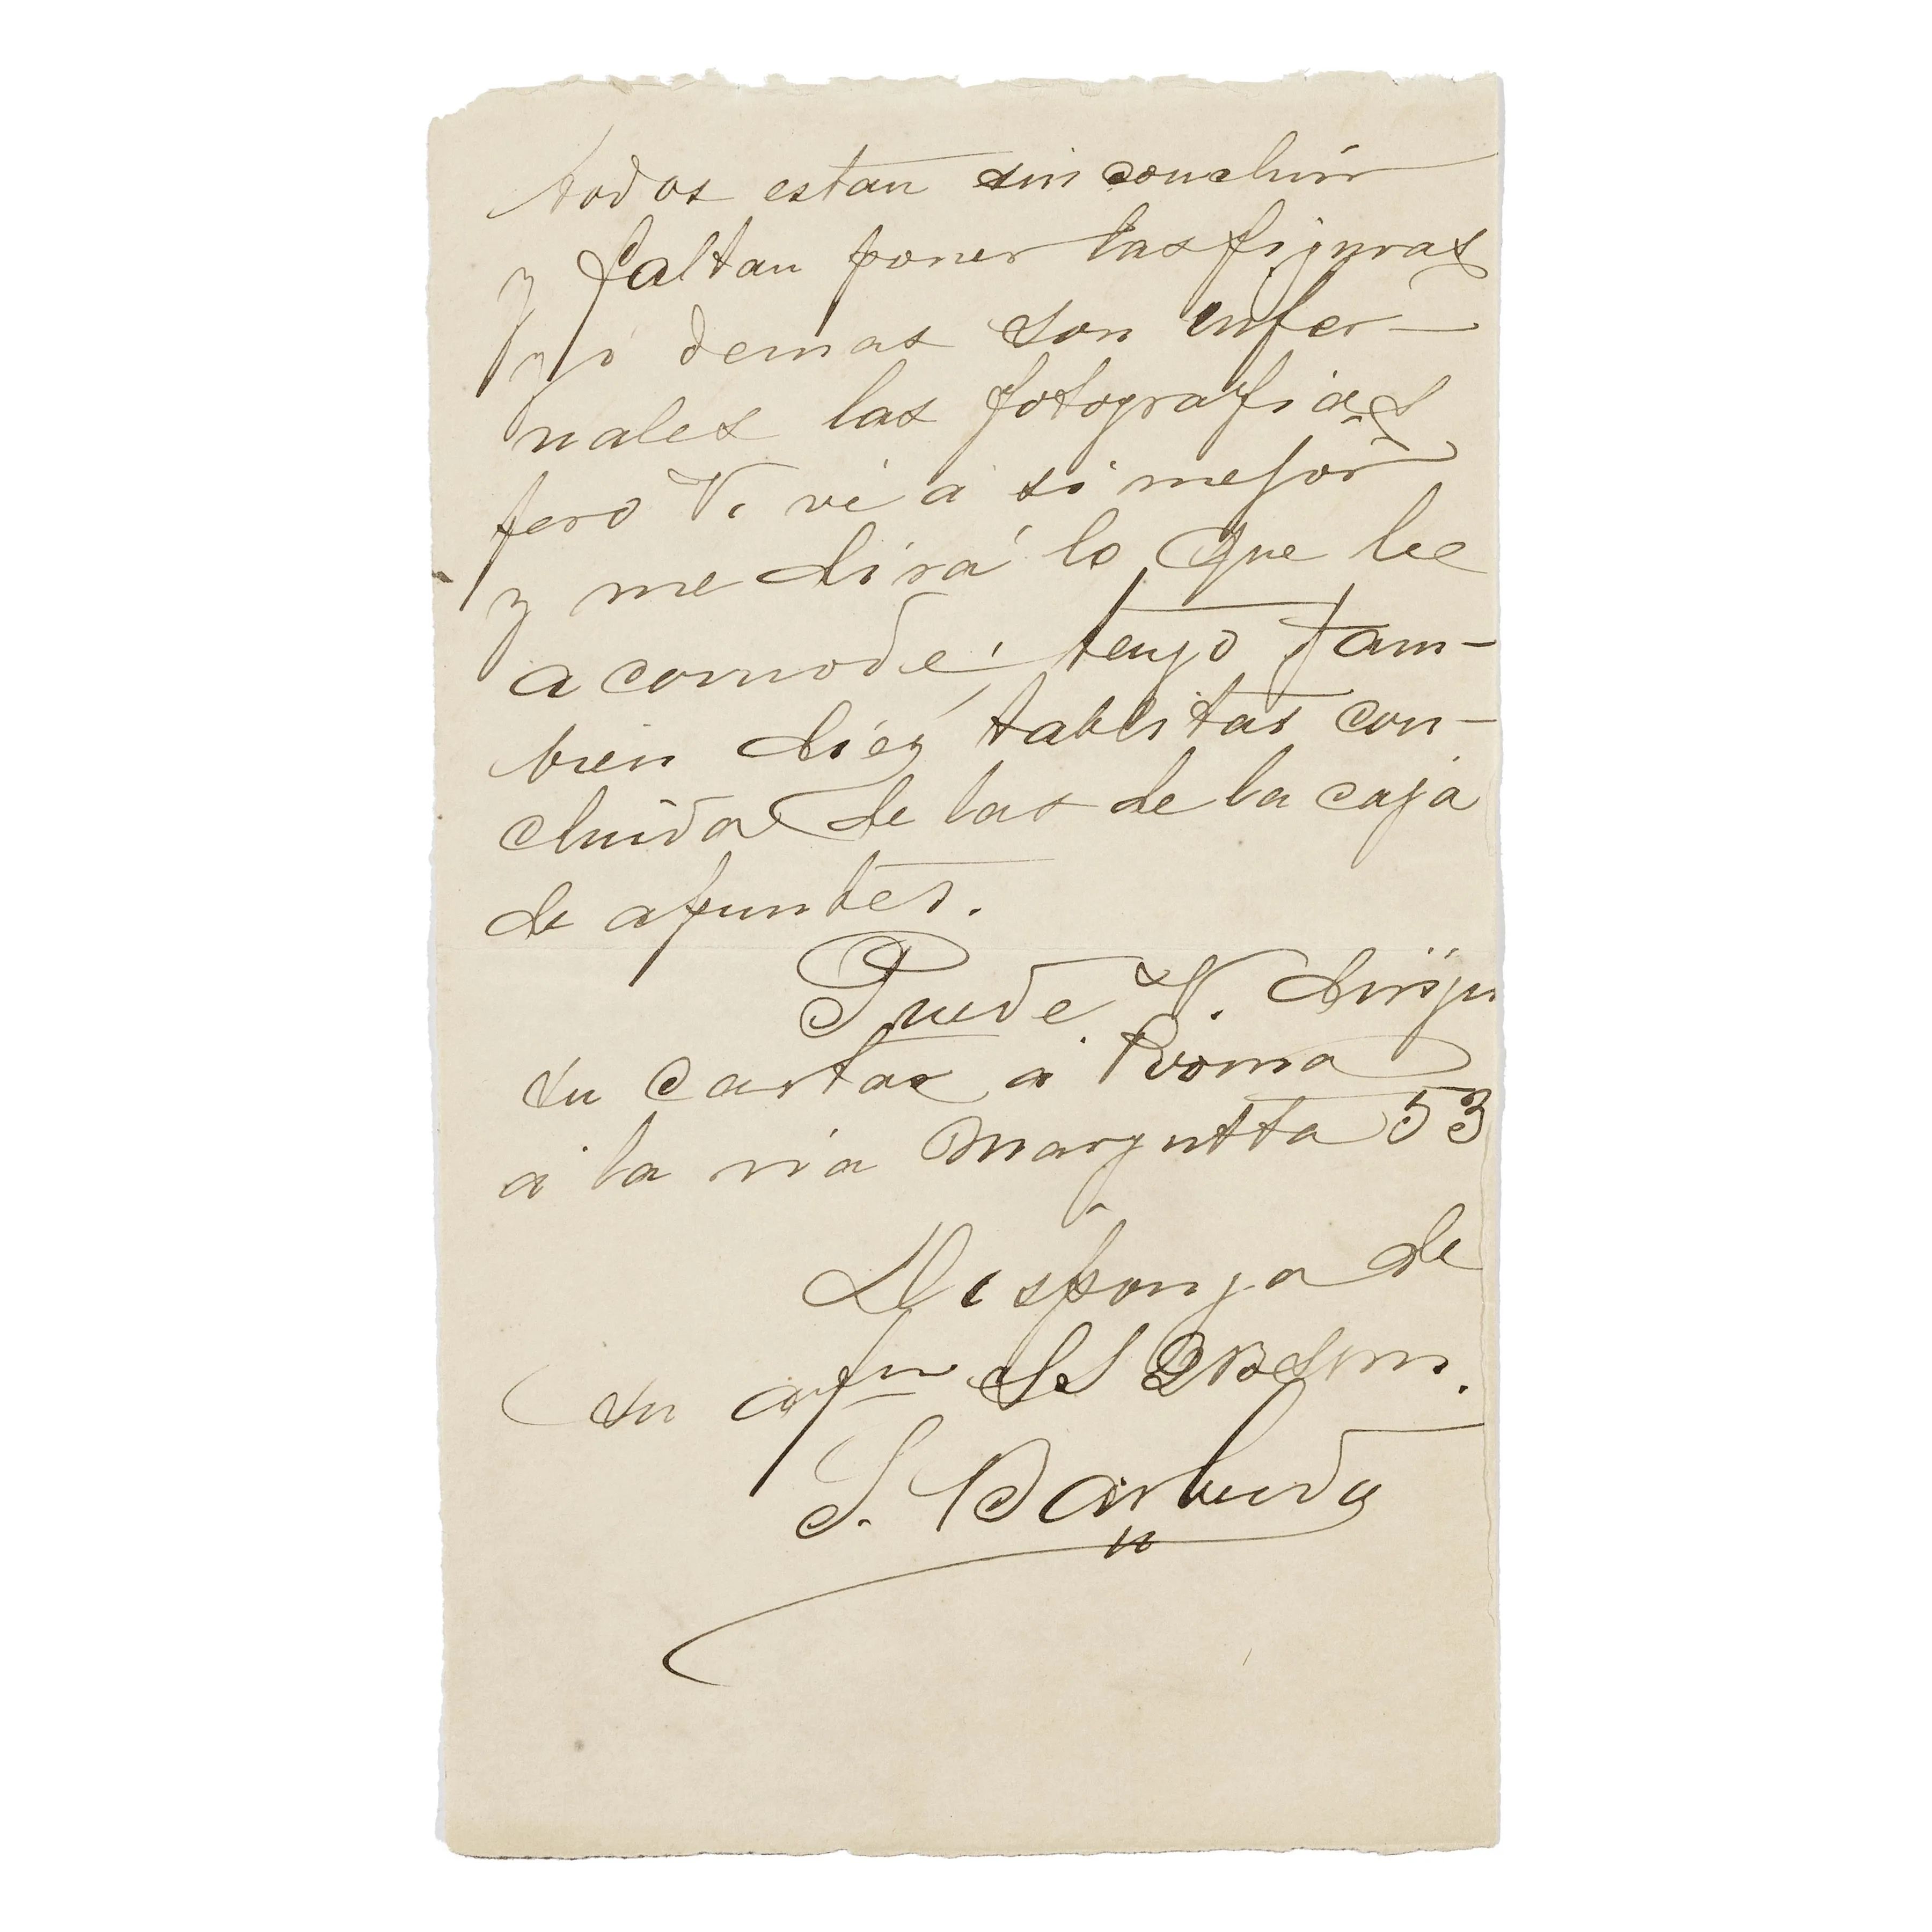 todos estan sin concluir
y faltan poner las figuras
y demas son infer-
nales las fotografias
pero V. vé á si mejor
y me dirá lo que le
acomode, tengo tam-
bien diez tablitas con-
cluidas de las de la caja
de apuntes.
Puede V. dirijir
su cartas á Roma
á la via Margutta 53
Disponga de
su afmo SS QBSM.
S. Barbuda